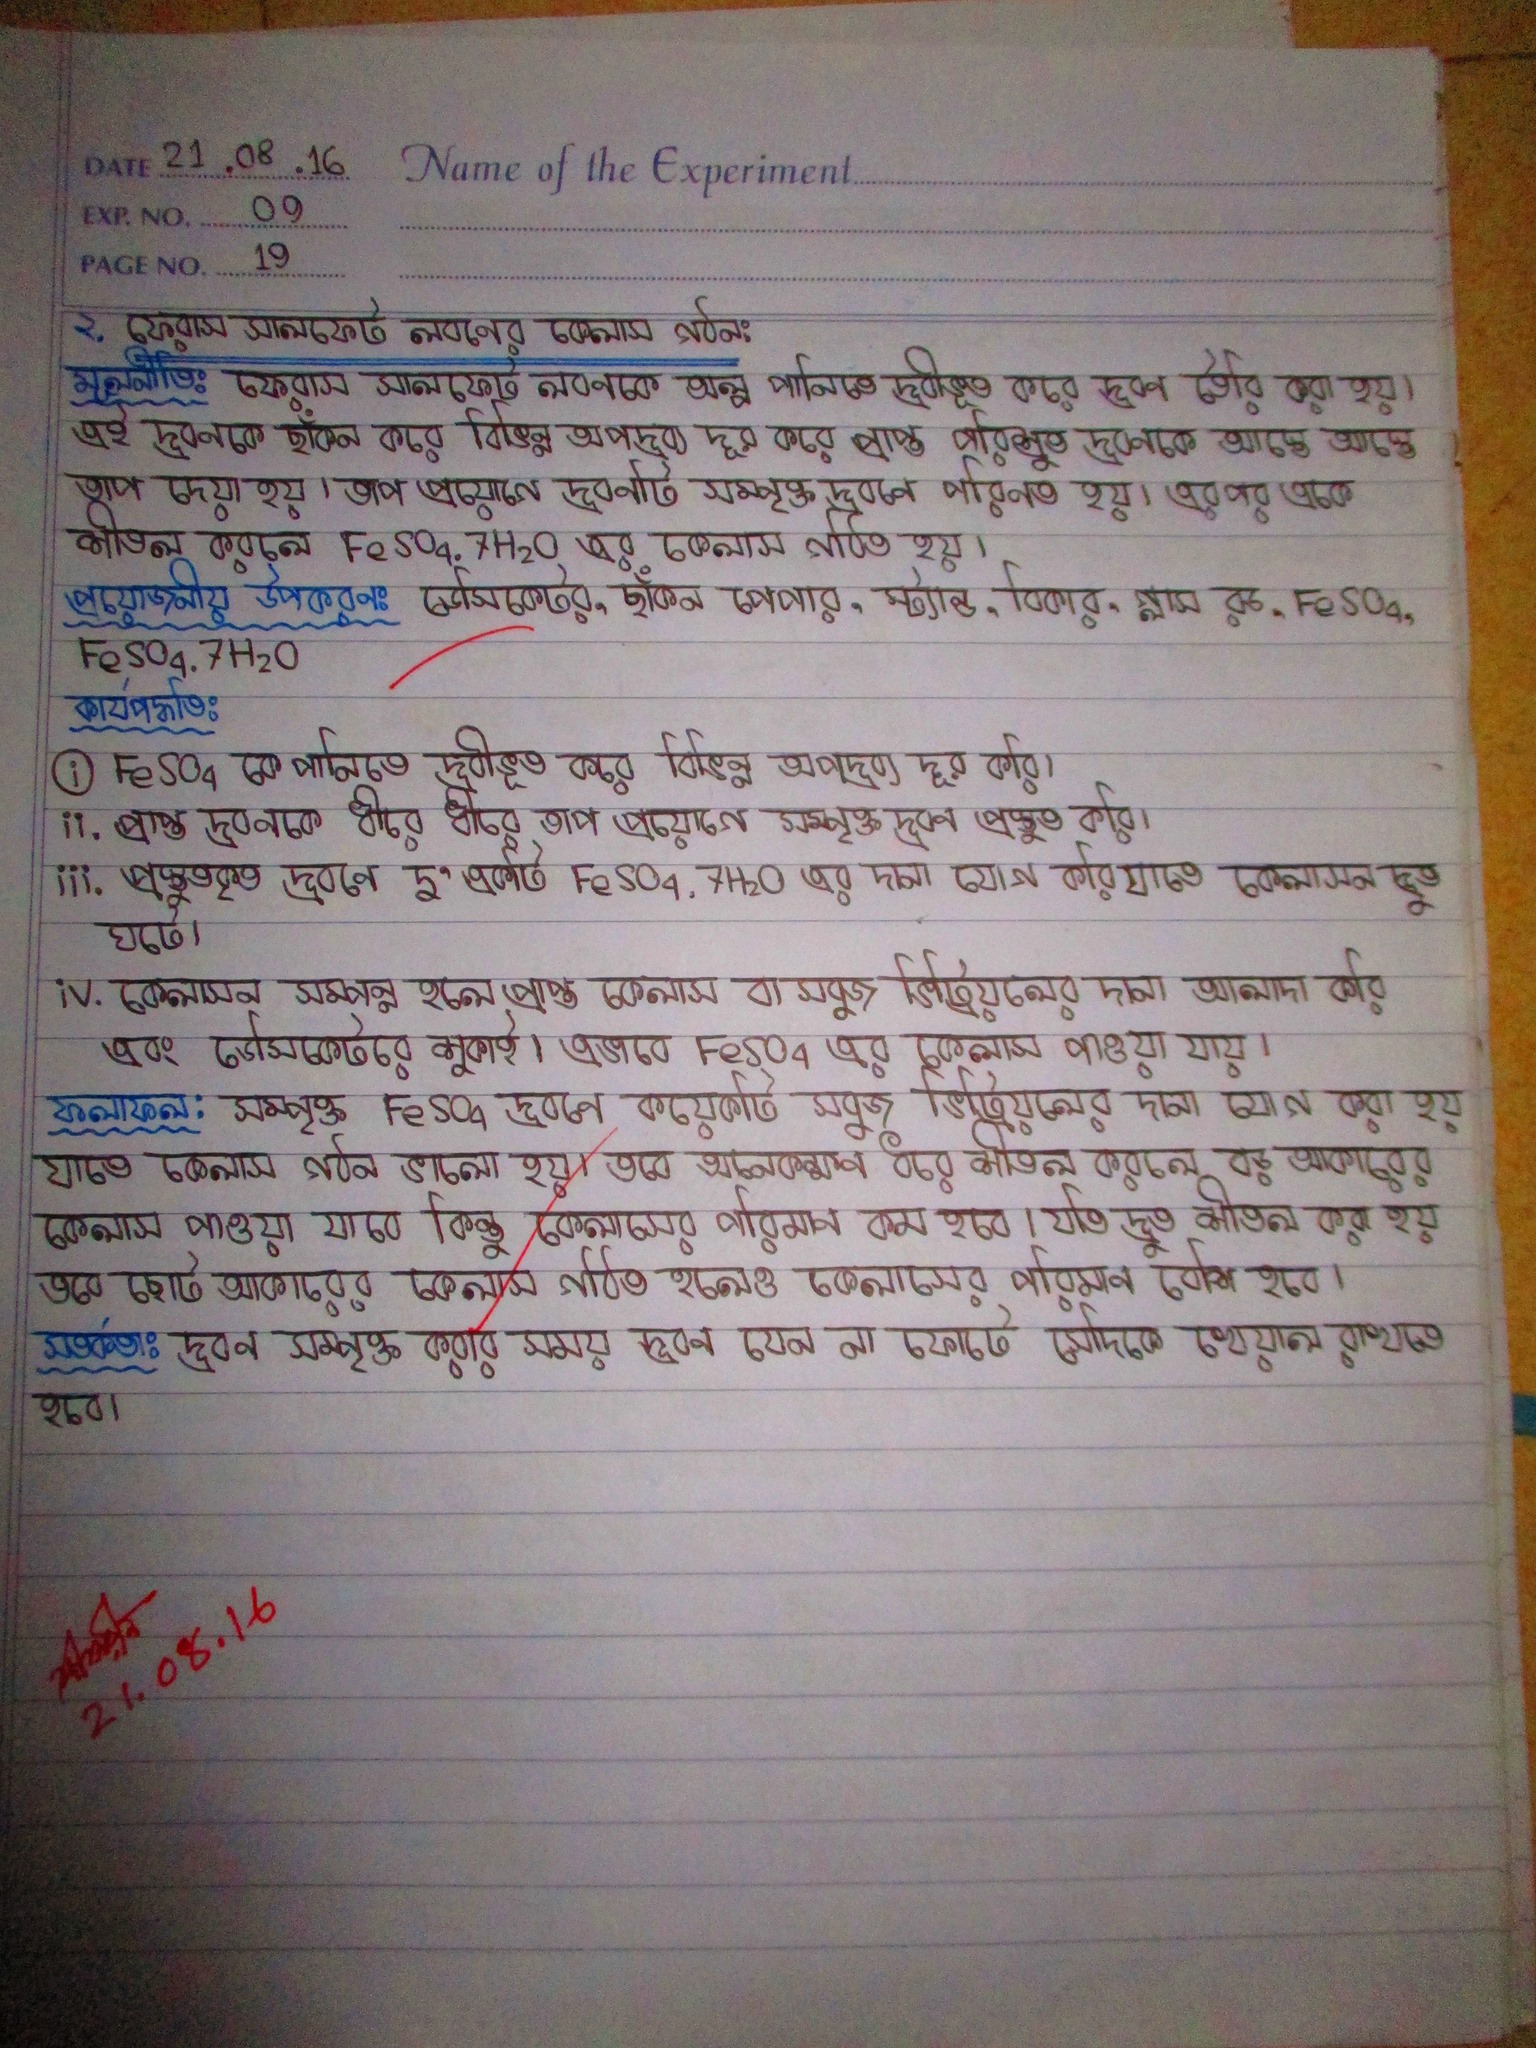 DATE 21.08.16 Name of the Experiment
EXP. NO. 09
PAGE NO. 19
২. ফেরাস সালফেট লবনের কেলাস গঠনঃ
মূলনীতিঃ ফেরাস সালফেট লবনকে অল্প পানিতে দ্রবীভূত করে দ্রবণ তৈরি করা হয়।
এই দ্রবনকে ছাঁকন করে বিভিন্ন অপদ্রব্য দূর করে প্রাপ্ত পরিস্রুত দ্রবনকে আস্তে আস্তে
তাপ দেয়া হয়। তাপ প্রয়োগে দ্রবণটি সম্পৃক্ত দ্রবনে পরিনত হয়। এরপর একে
শীতল করলে FeSO4.7H2O এর কেলাস গঠিত হয়।
প্রয়োজনীয় উপকরণঃ ডেসিকেটর, ছাঁকন পেপার, স্ট্যান্ড, বিকার, গ্লাস রড, FeSO4,
FeSO4.7H2O
কার্যপদ্ধতিঃ
i FeSO4 কে পানিতে দ্রবীভূত করে বিভিন্ন অপদ্রব্য দূর করি।
ii. প্রাপ্ত দ্রবনকে ধীরে ধীরে তাপ প্রয়োগে সম্পৃক্ত দ্রবণ প্রস্তুত করি।
iii. প্রস্তুতকৃত দ্রবণে দু'একটি FeSO4.7H2O এর দানা যোগ করি যাতে কেলাসন দ্রুত
ঘটে।
iv. কেলাসন সম্পন্ন হলে প্রাপ্ত কেলাস বা সবুজ ভিট্রিয়লের দানা আলাদা করি
এবং ডেসিকেটরে শুকাই। এভাবে FeSO4 এর কেলাস পাওয়া যায়।
ফলাফল: সম্পৃক্ত FeSO4 দ্রবণে কয়েকটি সবুজ ভিট্রিয়লের দানা যোগ করা হয়
যাতে কেলাস গঠন ভালো হয়। তবে অনেকক্ষণ ধরে শীতল করলে বড় আকারের
কেলাস পাওয়া যাবে কিন্তু কেলাসের পরিমাণ কম হবে। যতি দ্রুত শীতল করা হয়
তবে ছোট আকারের কেলাস গঠিত হলেও কেলাসের পরিমাণ বেশি হবে।
সতর্কতাঃ দ্রবণ সম্পৃক্ত করার সময় দ্রবণ যেন না ফোটে সেদিকে খেয়াল রাখতে
হবে।
21.08.16